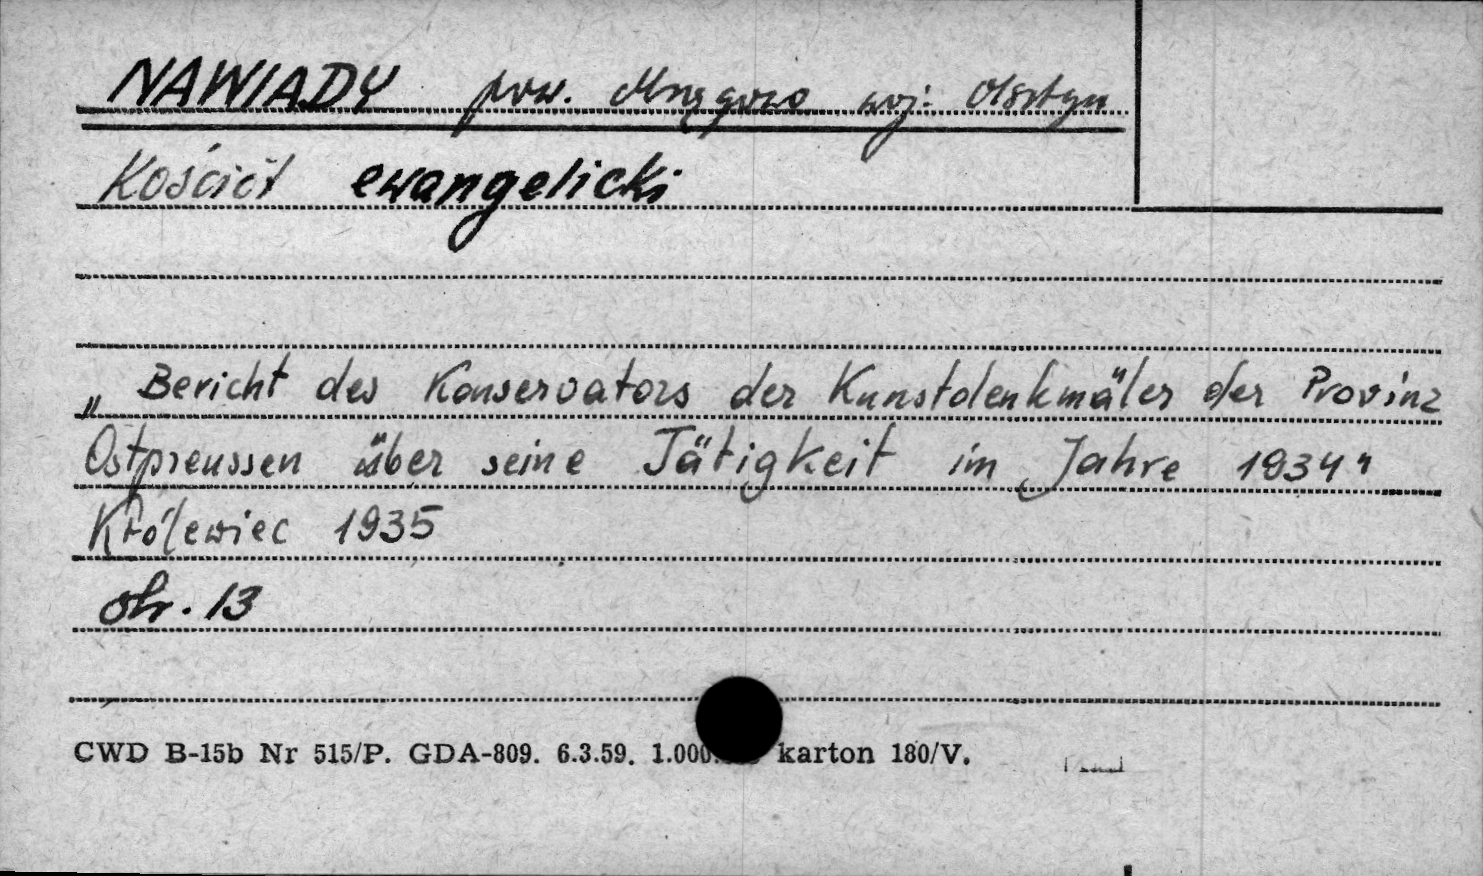 NAWIADY pow. Mrągowo woj. Olsztyn
Kościół ewangelicki
„Bericht des Konservators der Kunstdenkmäler der Provinz
Ostpreussen über seine Tätigkeit im Jahre 1934"
Królewiec 1935
str. 13
CWD B-15b Nr 515/P. GDA-809. 6.3.59. karton 180/V.